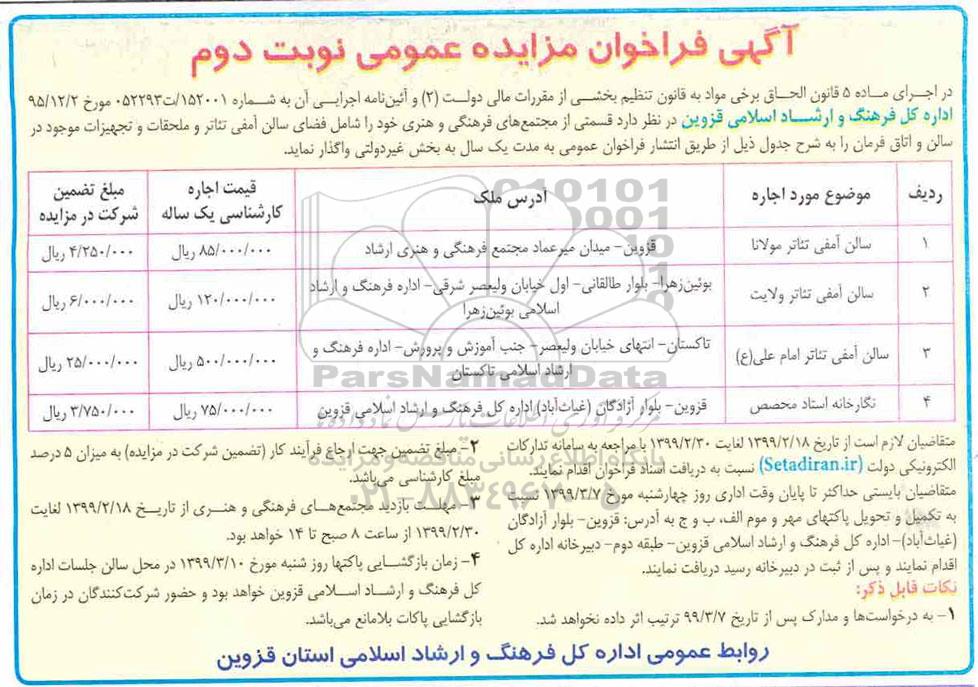 آگهی فراخوان مزایده عمومی نوبت دوم
در اجرای ماده ۵ قانون الحاق برخی مواد به قانون تنظیم بخشی از مقررات مالی دولت (۲) و آئین‌نامه اجرایی آن به شماره ۱۵۲۰۰۱/ت۰۵۲۲۹۳ مورخ ۹۵/۱۲/۲
اداره کل فرهنگ و ارشاد اسلامی قزوین در نظر دارد قسمتی از مجتمع‌های فرهنگی و هنری خود را شامل فضای سالن آمفی تئاتر و ملحقات و تجهیزات موجود در
سالن و اتاق فرمان را به شرح جدول ذیل از طریق انتشار فراخوان عمومی به مدت یک سال به بخش غیردولتی واگذار نماید.
ردیف | موضوع مورد اجاره | آدرس ملک | قیمت اجاره کارشناسی یک ساله | مبلغ تضمین شرکت در مزایده
۱ | سالن آمفی تئاتر مولانا | قزوین- میدان میرعماد مجتمع فرهنگی و هنری ارشاد | ۸۵/۰۰۰/۰۰۰ ریال | ۴/۲۵۰/۰۰۰ ریال
۲ | سالن آمفی تئاتر ولایت | بوئین‌زهرا- بلوار طالقانی- اول خیابان ولیعصر شرقی- اداره فرهنگ و ارشاد اسلامی بوئین‌زهرا | ۱۲۰/۰۰۰/۰۰۰ ریال | ۶/۰۰۰/۰۰۰ ریال
۳ | سالن آمفی تئاتر امام علی(ع) | تاکستان- انتهای خیابان ولیعصر- جنب آموزش و پرورش- اداره فرهنگ و ارشاد اسلامی تاکستان | ۵۰۰/۰۰۰/۰۰۰ ریال | ۲۵/۰۰۰/۰۰۰ ریال
۴ | نگارخانه استاد محصص | قزوین- بلوار آزادگان (غیاث‌آباد) اداره کل فرهنگ و ارشاد اسلامی قزوین | ۷۵/۰۰۰/۰۰۰ ریال | ۳/۷۵۰/۰۰۰ ریال
ParsNamadData
پایگاه اطلاع رسانی مناقصه و مزایده
۰۲۱-۸۸۳۴۹۶۷۰-۵
متقاضیان لازم است از تاریخ ۱۳۹۹/۲/۱۸ لغایت ۱۳۹۹/۲/۳۰ با مراجعه به سامانه تدارکات
الکترونیکی دولت (Setadiran.ir) نسبت به دریافت اسناد فراخوان اقدام نمایند.
متقاضیان بایستی حداکثر تا پایان وقت اداری روز چهارشنبه مورخ ۱۳۹۹/۳/۷ نسبت
به تکمیل و تحویل پاکتهای مهر و موم الف، ب و ج به آدرس: قزوین- بلوار آزادگان
(غیاث‌آباد)- اداره کل فرهنگ و ارشاد اسلامی قزوین- طبقه دوم- دبیرخانه اداره کل
اقدام نمایند و پس از ثبت در دبیرخانه رسید دریافت نمایند.
نکات قابل ذکر:
۱- به درخواست‌ها و مدارک پس از تاریخ ۹۹/۳/۷ ترتیب اثر داده نخواهد شد.
۲- مبلغ تضمین جهت ارجاع فرآیند کار (تضمین شرکت در مزایده) به میزان ۵ درصد
مبلغ کارشناسی می‌باشد.
۳- مهلت بازدید مجتمع‌های فرهنگی و هنری از تاریخ ۱۳۹۹/۲/۱۸ لغایت
۱۳۹۹/۲/۳۰ از ساعت ۸ صبح تا ۱۴ خواهد بود.
۴- زمان بازگشایی پاکتها روز شنبه مورخ ۱۳۹۹/۳/۱۰ در محل سالن جلسات اداره
کل فرهنگ و ارشاد اسلامی قزوین خواهد بود و حضور شرکت‌کنندگان در زمان
بازگشایی پاکات بلامانع می‌باشد.
روابط عمومی اداره کل فرهنگ و ارشاد اسلامی استان قزوین